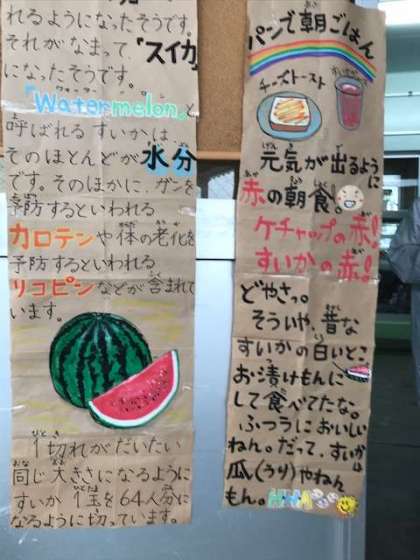 れるようになったそうです。
それがなまって、"スイカ"
になったそうです。
"Watermelon"と
呼ばれるすいかは
そのほとんどが水分
です。そのほかに、ガンを
予防するといわれる
カロテンや体の老化を
予防するといわれる
リコピンなどが含まれて
います。
1切れがだいたい
同じ大きさになるように
すいか1玉を64人分に
なるように切っています。
パンで朝ごはん
チーズトースト
元気が出るように
赤の朝食。
ケチャップの赤!
すいかの赤!
どやさっ。
そういや、昔な
すいかの白いとこ
お漬けもんに
して食べてたな。
ふつうにおいしい
ねん。だって、すいかは
瓜(うり)やねん
もん。